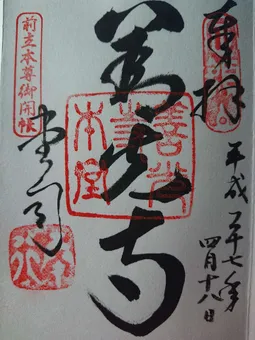 奉拝
平成二十七年
四月十八日
善光寺
善光寺本堂
前立本尊御開帳
堂司